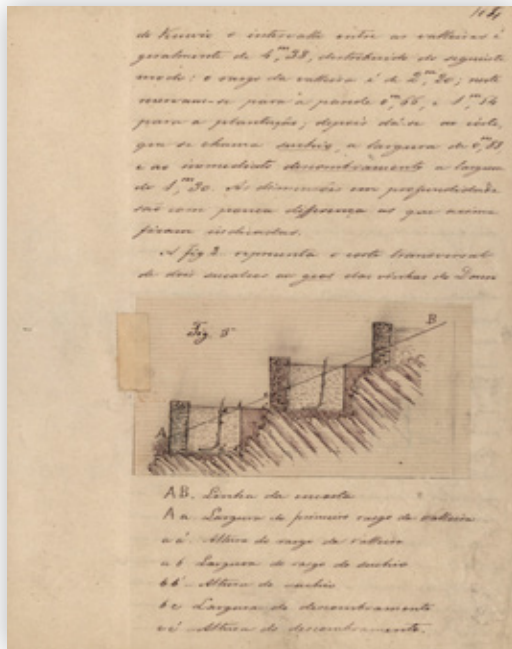 104
de Xerrvie o intervallo entre as valleiras é
geralmente de 4,^m 38, distribuido do seguinte
modo: o rasgo da valleira é de 2,^m 20; neste
reservam-se para a parede 0,^m 66, e 1,^m 54
para a plantação; depois dá-se ao córte,
que se chama suchio, a largura de 0,^m 88
e ao immediato descombramento a largura
de 1,^m 30. As dimensões em profundidade
são com pouca differença as que acima
ficaram indicadas.
A fig 2 representa o córte transversal
de dois socalcos ao geral das vinhas do Douro
Fig. 5
A
B
AB. Linha da encosta
A a Largura do primeiro rasgo da valleira
a a' Altura do rasgo da valleira
a b Largura do rasgo do suchio
b b' Altura do suchio
b c Largura do descombramento
c c' Altura do descombramento.